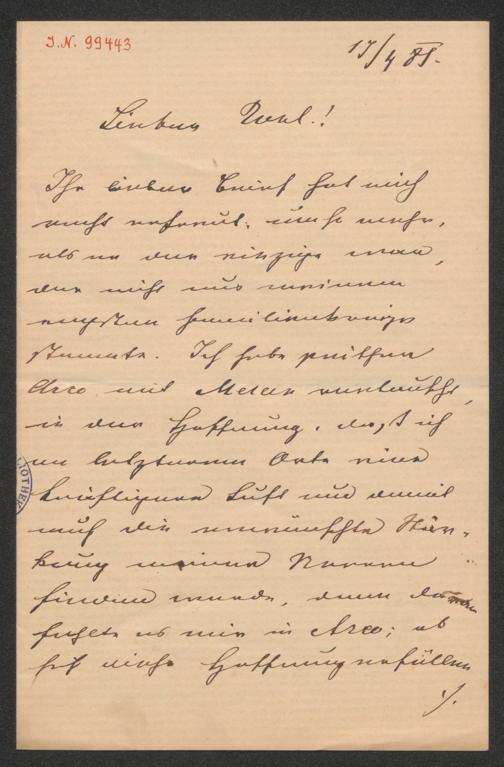 I.N. 99443
17/4 81.
Lieber Paul!
Ihr lieber Brief hat mich
recht erfreut, um so mehr,
als er der einzige war,
der nicht aus meinem
engsten Familienkreise
stammte. Ich habe seither
Arco mit Meran vertauscht,
in der Hoffnung, daß ich
an letzterem Orte eine
kräftigere Luft und damit
auch die erwünschte Stär-
kung meiner Nerven
finden werde, denn
fehlte es mir in Arco; ob
sich diese Hoffnung erfüllen
./.
OTHEK